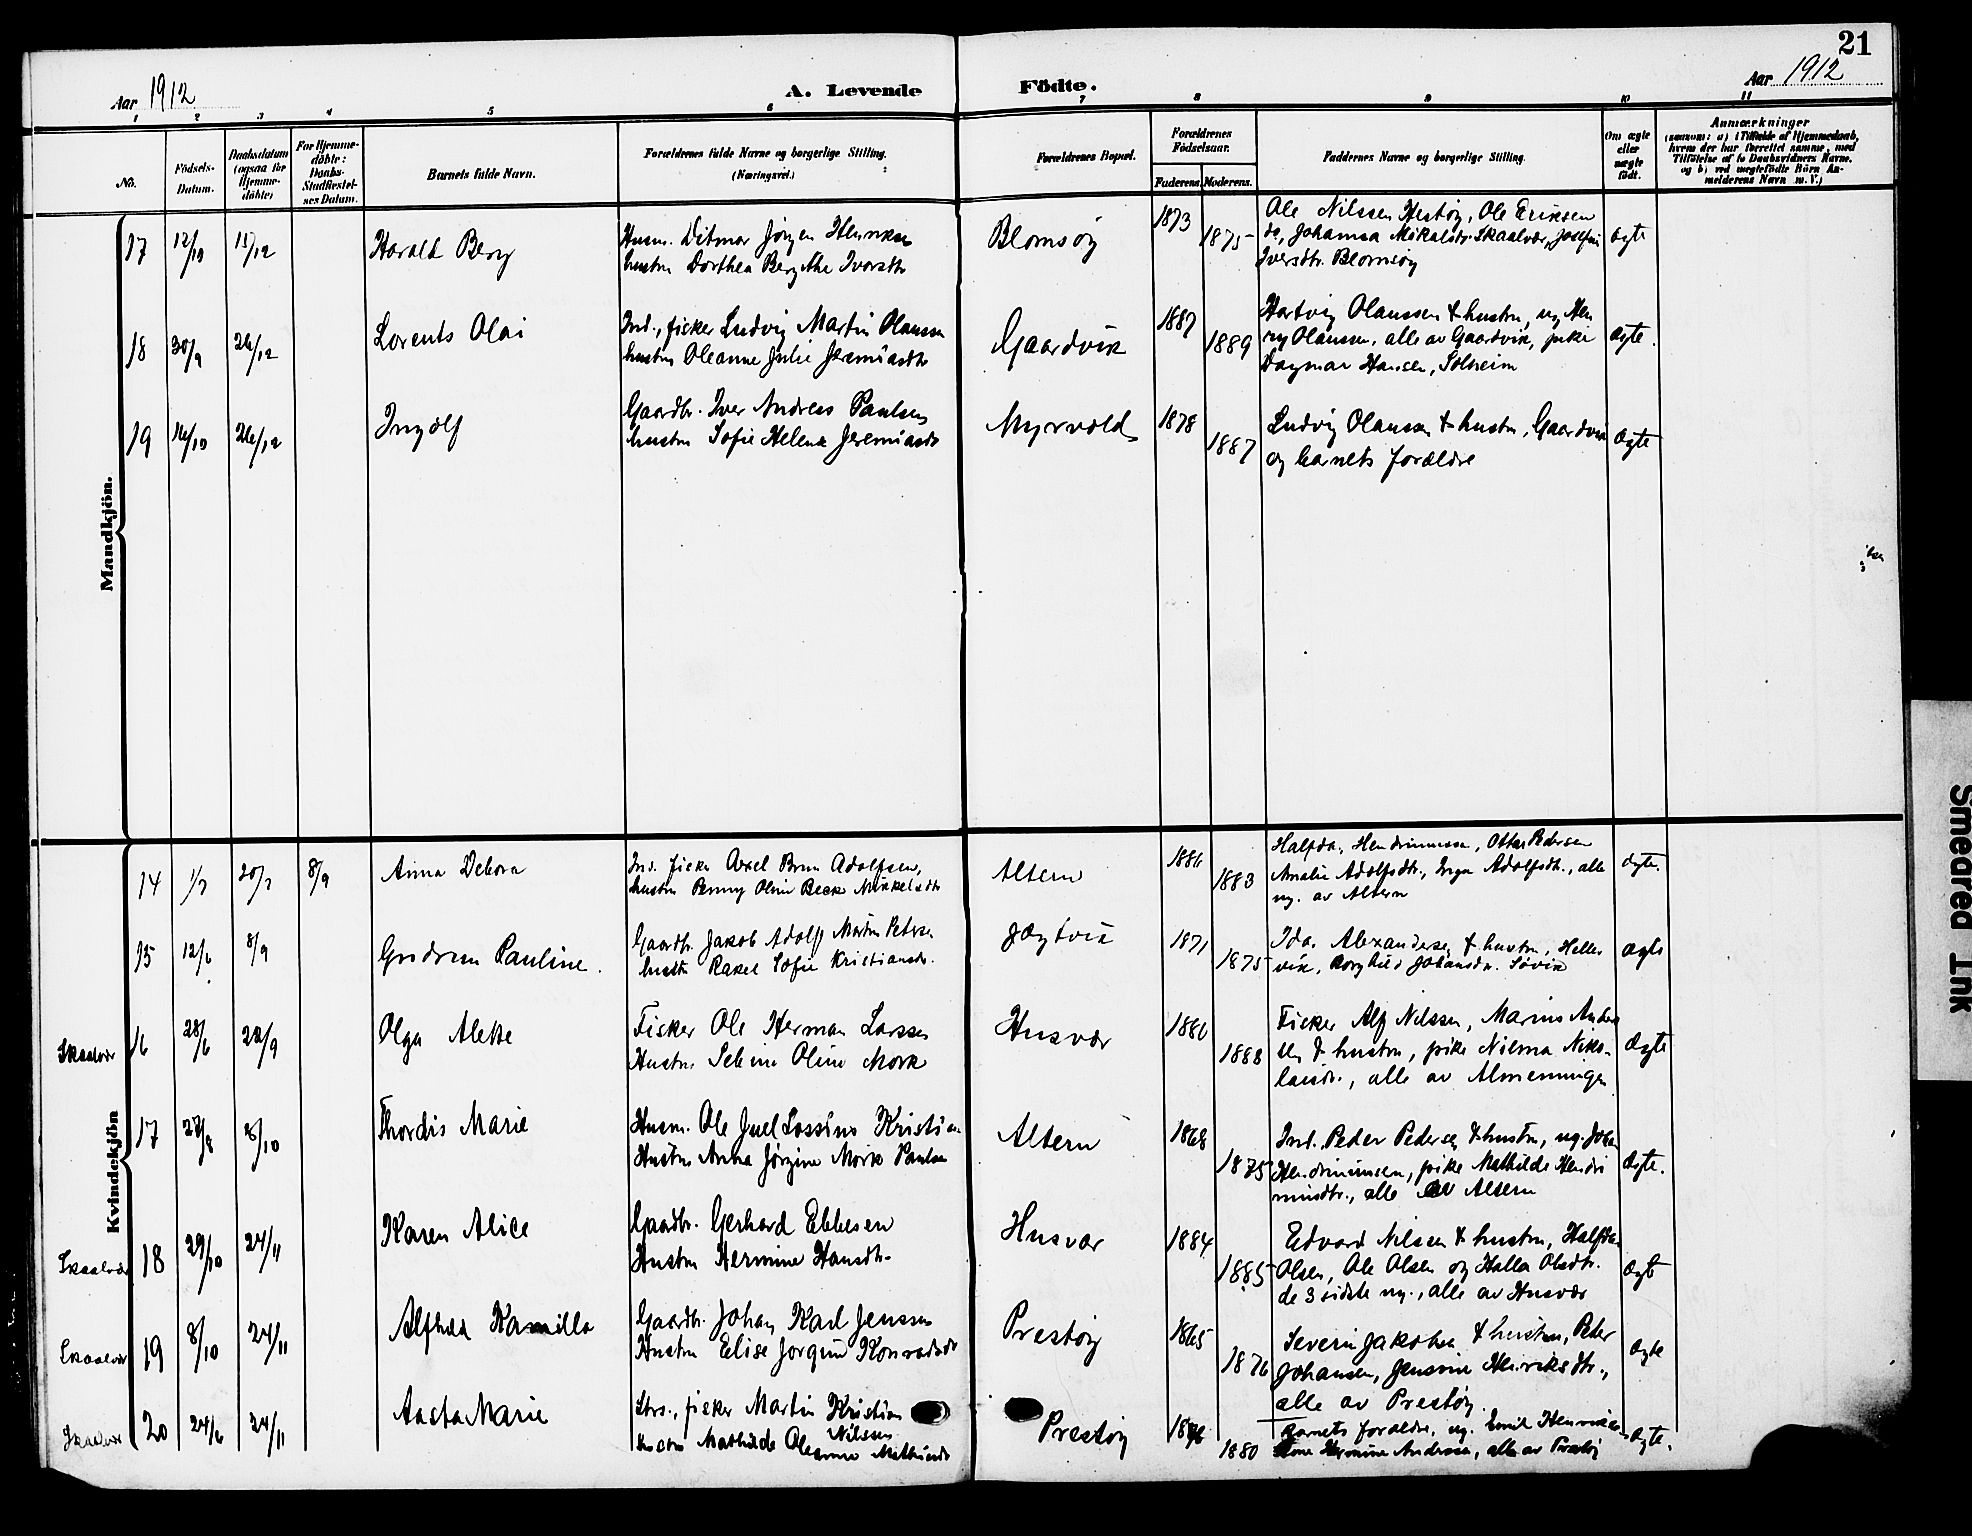 21
Aar 1912
A. Levende Födte.
Aar 1912
1 2 3 4 5 6 7 8 9 10 11
No.
Födsels-
Datum.
Daabsdatum
(ogsaa for
Hjemme-
döbte)
For Hjemme-
döbte:
Daabs-
Stadfæstel-
ses Datum.
Barnets fulde Navn.
Forældrenes fulde Navne og borgerlige Stilling.
(Næringsvei.)
Forældrenes Bopæl.
Forældrenes
Födselsaar.
Faderens. Moderens.
Faddernes Navne og borgerlige Stilling.
Om ægte
eller
uægte
födt.
Anmærkninger
(saasom: a) i Tilfælde af Hjemmedaab,
hvem der har forrettet samme, med
Tilföielse af to Daabsvidners Navne,
og b) ved uægtefödte Börn An-
melderens Navn m. V.)
Mandkjön.
17 12/10 15/12 Harald Berg
Husm. Ditmar Jörgen
hustru Dorthea Iversdtr
Blomsöy
1873
1875
Ole Nilssen Hestöy, Ole Eriksen
do, Johanna Mikalsdtr. Skaalvær, Josefine
Iversdtr. Blomsöy
ægte
18 30/9 26/12 Lorents Olai
Ind., fisker Ludvig Martin Olaussen
hustru Oleanne Julie Jeremiasdtr
Gaardvik
1887
1889
Hartvig Olaussen & hustru, ug. Hen
ry Olaussen, alle av Gaardvik, pike
Dagmar Hansen, Solheim
ægte.
19 16/10 26/12 Ingolf
Gaardbr. Iver Andreas Paulsen
hustru Sofie Helene Jeremiasdtr
Myrvold
1878
1887
Ludvig Olaussen & hustru, Gaardvik
og barnets forældre
ægte
Kvindekjön
14 1/7 20/7 8/9 Anna Debora
Ind. fisker Axel Brun Adolfsen,
hustru Penny Oline Beck Mikkelsdtr
Altern
1886
1883
Halfdan Hendriumssen, Otter Pedersen
Amalie Adolfsdtr., Inga Adolfsdtr., alle
ug. av Altern
ægte.
15 12/6 8/9 Gudrun Pauline.
Gaardbr. Jakob Adolf Martin Peterse
hustr. Rakel Sofie Kristiansdr.
Jægtvik
1871
1875
Ida. Alexandersen & hustru, Heller
vik, Borghild Johansdtr. Søvik
ægte
Skaalvær
16 28/6 22/9 Olga Alette
Fisker Ole Herman Larssen
Hustru Sebine Oline Mork
Husvær
1886
1888
Fisker Alf Nilssen, Marius Anders
sen & hustru, pike Nilsma Niko-
laisdtr., alle av Almenningen
Ægte
17 27/8 6/10 Thordis Marie
Husm. Ole Juel Lassinus Kristian
Hustru Anna Jörgine Mork Paulse
Altern
1868
1875
Ind. Peder Pedersen & hustru, ug. Johan
Hendriumsen, pike Mathilde Hendri
umsdtr., alle av Altern
Ægte.
Skaalvær
18 29/10 24/11 Karen Alice
Gaardbr. Gerhard Ebbesen
Hustru Hermine Hansdtr.
Husvær
1884
1885
Edvard Nilssen & hustru, Halfdan
Olsen, Ole Olsen og Halla Olsdtr.
de 3 sidste ug., alle av Husvær
Ægte
Skaalvær
19 8/10 24/11 Alfhild Kamilla
Gaardbr. Johan Karl Jenssen
Hustru Elise Jorgine Konradsdtr
Prestöy
1865
1876
Severin Jakobsen & hustru, Peter
Johansen, Jensine Henriksdtr.,
alle av Prestöy.
Ægte
Skaalvær
20 24/6 24/11 Aasta Marie
Strs., fisker Martin Kristian
Nilssen
hustru Mathilde Oleanna
Prestöy
1876
1880
Barnets forældre, ug. Emil Henriksen
Hermine Anderssen, alle av Prestöy
ægte.
Smeared Ink